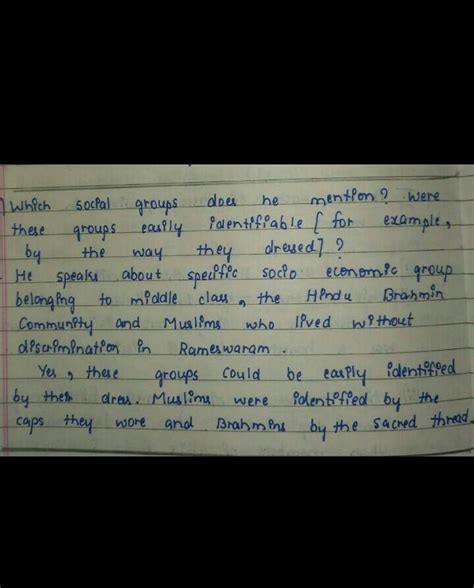 Which social groups does he mention? were
these groups easily identifiable [ for example,
by the way they dressed] ?
He speaks about specific socio economic group
belonging to middle class, the Hindu Brahmin
Community and Muslims who lived without
discrimination in Rameswaram.
Yes, these groups could be easily identified
by their dress. Muslims were identified by the
caps they wore and Brahmins by the sacred thread.